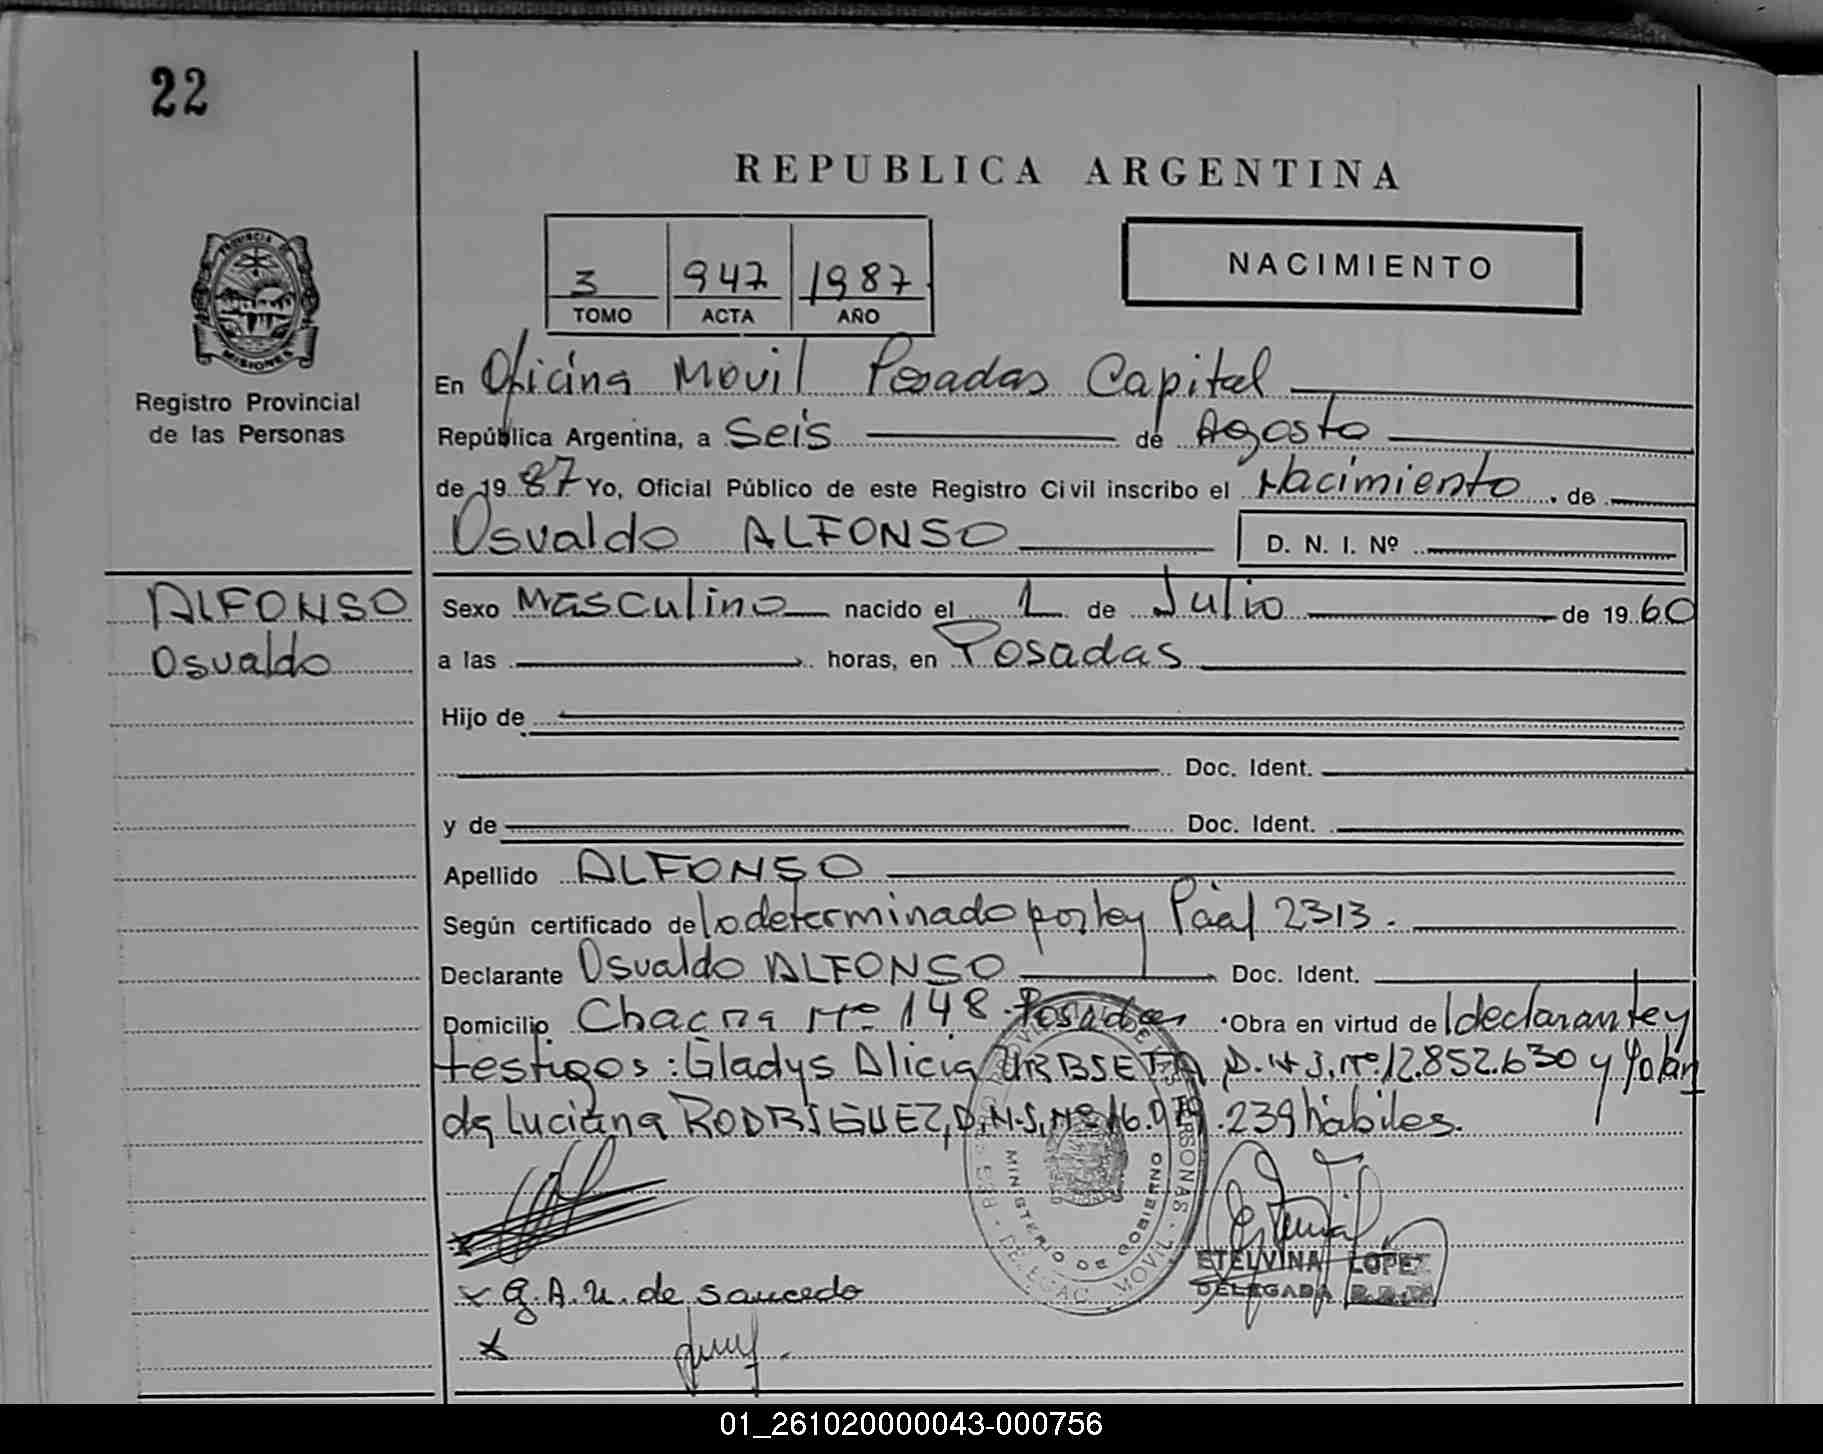 22
REPUBLICA ARGENTINA
PROVINCIA DE
MISIONES
3 947 1987
TOMO ACTA AÑO
NACIMIENTO
Registro Provincial
de las Personas
En Oficina Movil Posadas Capital
República Argentina, a Seis de Agosto
de 1987 Yo, Oficial Público de este Registro Civil inscribo el Nacimiento. de
Osvaldo ALFONSO D. N. I. Nº
ALFONSO
Osvaldo
Sexo Masculino nacido el 1 de Julio de 1960
a las horas, en Posadas
Hijo de
Doc. Ident.
y de Doc. Ident.
Apellido ALFONSO
Según certificado de lo determinado por ley Pcial 2313.
Declarante Osvaldo ALFONSO Doc. Ident.
Domicilio Chacra Nº 148. Posadas Obra en virtud de l declarante y
testigos: Gladys Alicia D.N.I. Nº 12.852.630 y Yolan
da Luciana RODRIGUEZ, D.N.I, Nº 16.0 .239 hábiles.
MINISTERIO DE GOBIERNO
DELEGAC. MOVIL
x g. A. U. de Saucedo
x
ETELVINA LOPEZ
DELEGADA
01_261020000043-000756